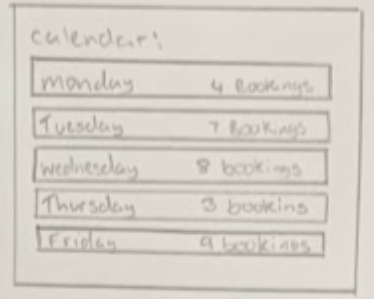 calendar:
monday 4 Bookings
Tuesday 7 Bookings
wednesday 8 bookings
Thursday 3 bookins
Friday 9 bookings